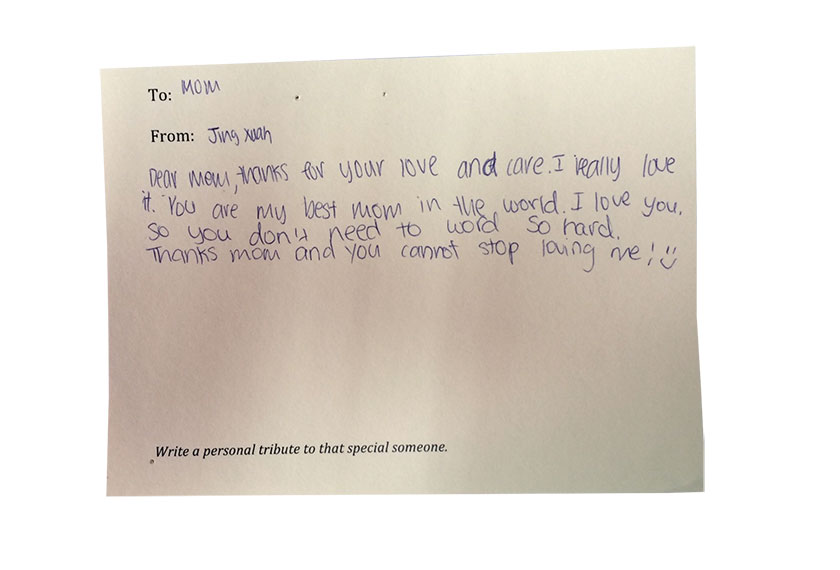 To: MOM
From: Jing xuan
Dear mom, thanks for your love and care. I really love
it. You are my best mom in the world. I love you,
so you don't need to word so hard.
Thanks mom and you cannot stop loving me! :)
Write a personal tribute to that special someone.